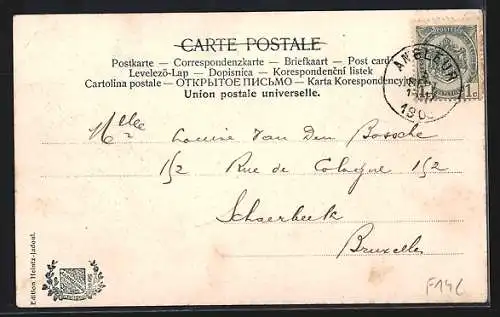 CARTE POSTALE
Postkarte — Correspondenzkarte — Briefkaart — Post card
Levelező-Lap — Dopisnica — Korespondenční listek
Cartolina postale — ОТКРЫТОЕ ПИСЬМО — Karta Korespondency
Union postale universelle.
ANGLEUR
190
1c
Mlle Louise Van Den Bossche
152 Rue de Cologne 152
Schaerbeek
Bruxelles
Edition Heintz-Jadoul.
F14C